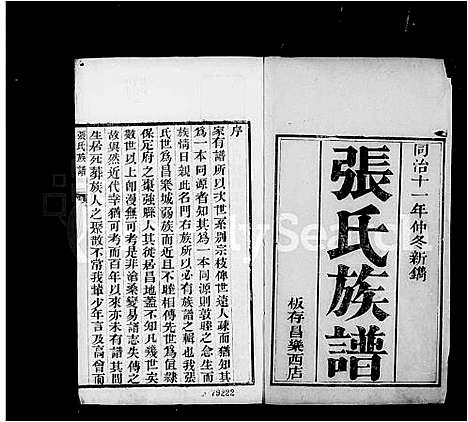 同治十一年仲冬新鐫
張氏族譜
板存昌樂西店
序
家有譜所以次世系別宗枝俾世遠人疎而猶知其
為一本同源者知其為一本同源則敦睦之念生而
族情日親此名門右族所以必有族譜之輯也我張
氏世為昌樂城弱族而近世相傳先世為直隸
保定府之棗強縣人其徙居昌地蓋不知凡幾世矣
數世以上聞漫無可考是非滄桑變易譜志失傳之
故與然近代幸猶可考而百年以來亦未有譜其間
生居死葬族人之聚散不常我輩少年言及高曾而
張氏族譜
79222